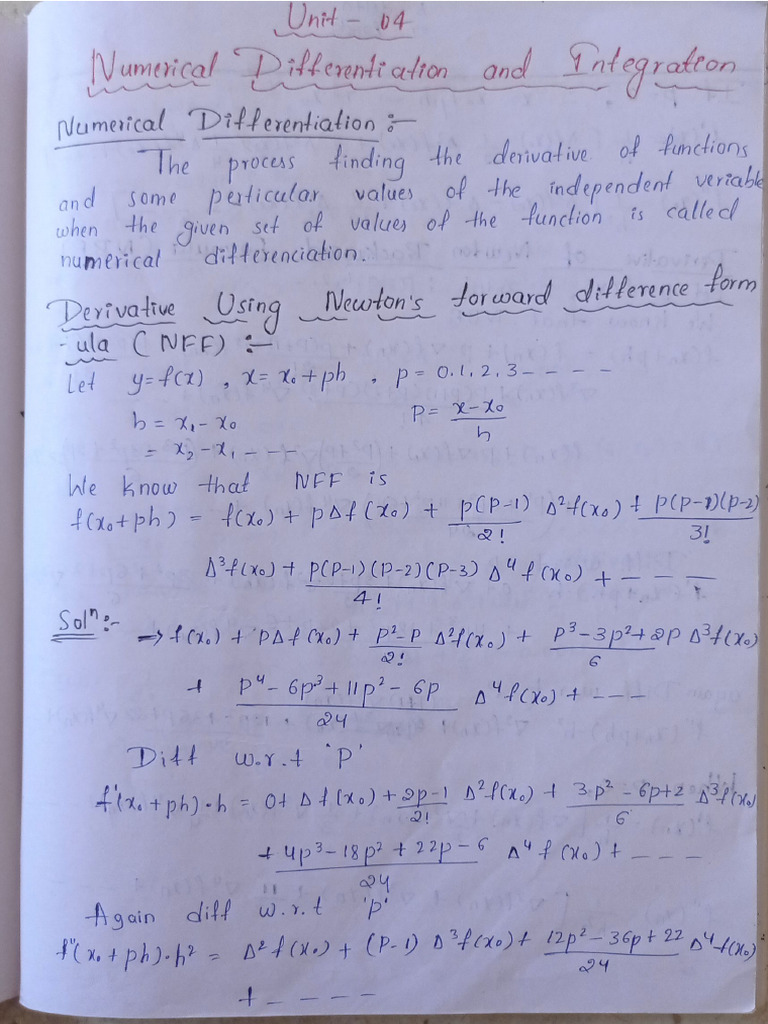 Unit - 04
Numerical Differentiation and Integration
Numerical Differentiation :-
The process finding the derivative of functions
and some perticular values of the independent veriable
when the given set of values of the function is called
numerical differenciation.
Derivative Using Newton's forward difference form
-ula (NFF) :-
Let y=f(x) , x= x₀+ph , p= 0,1,2,3- - - -
h = x₁-x₀ P= (x-x₀)/h
= x₂-x₁ - - -
We know that NFF is
f(x₀+ph) = f(x₀) + pΔf(x₀) + p(p-1)/2! Δ²f(x₀) + p(p-1)(p-2)/3!
Δ³f(x₀) + p(p-1)(p-2)(p-3)/4! Δ⁴f(x₀) + - - -
Solⁿ:- → f(x₀) + pΔf(x₀) + (p²-p)/2! Δ²f(x₀) + (p³-3p²+2p)/6 Δ³f(x₀)
+ (p⁴-6p³+11p²-6p)/24 Δ⁴f(x₀) + - - -
Diff w.r.t 'P'
f'(x₀+ph)·h = 0+Δf(x₀)+(2p-1)/2! Δ²f(x₀) + (3p²-6p+2)/6 Δ³f(x₀)
+ (4p³-18p²+22p-6)/24 Δ⁴f(x₀) + - - -
Again diff w.r.t 'p'
f"(x₀+ph)·h² = Δ²f(x₀) + (p-1) Δ³f(x₀) + (12p²-36p+22)/24 Δ⁴f(x₀)
+ - - - -